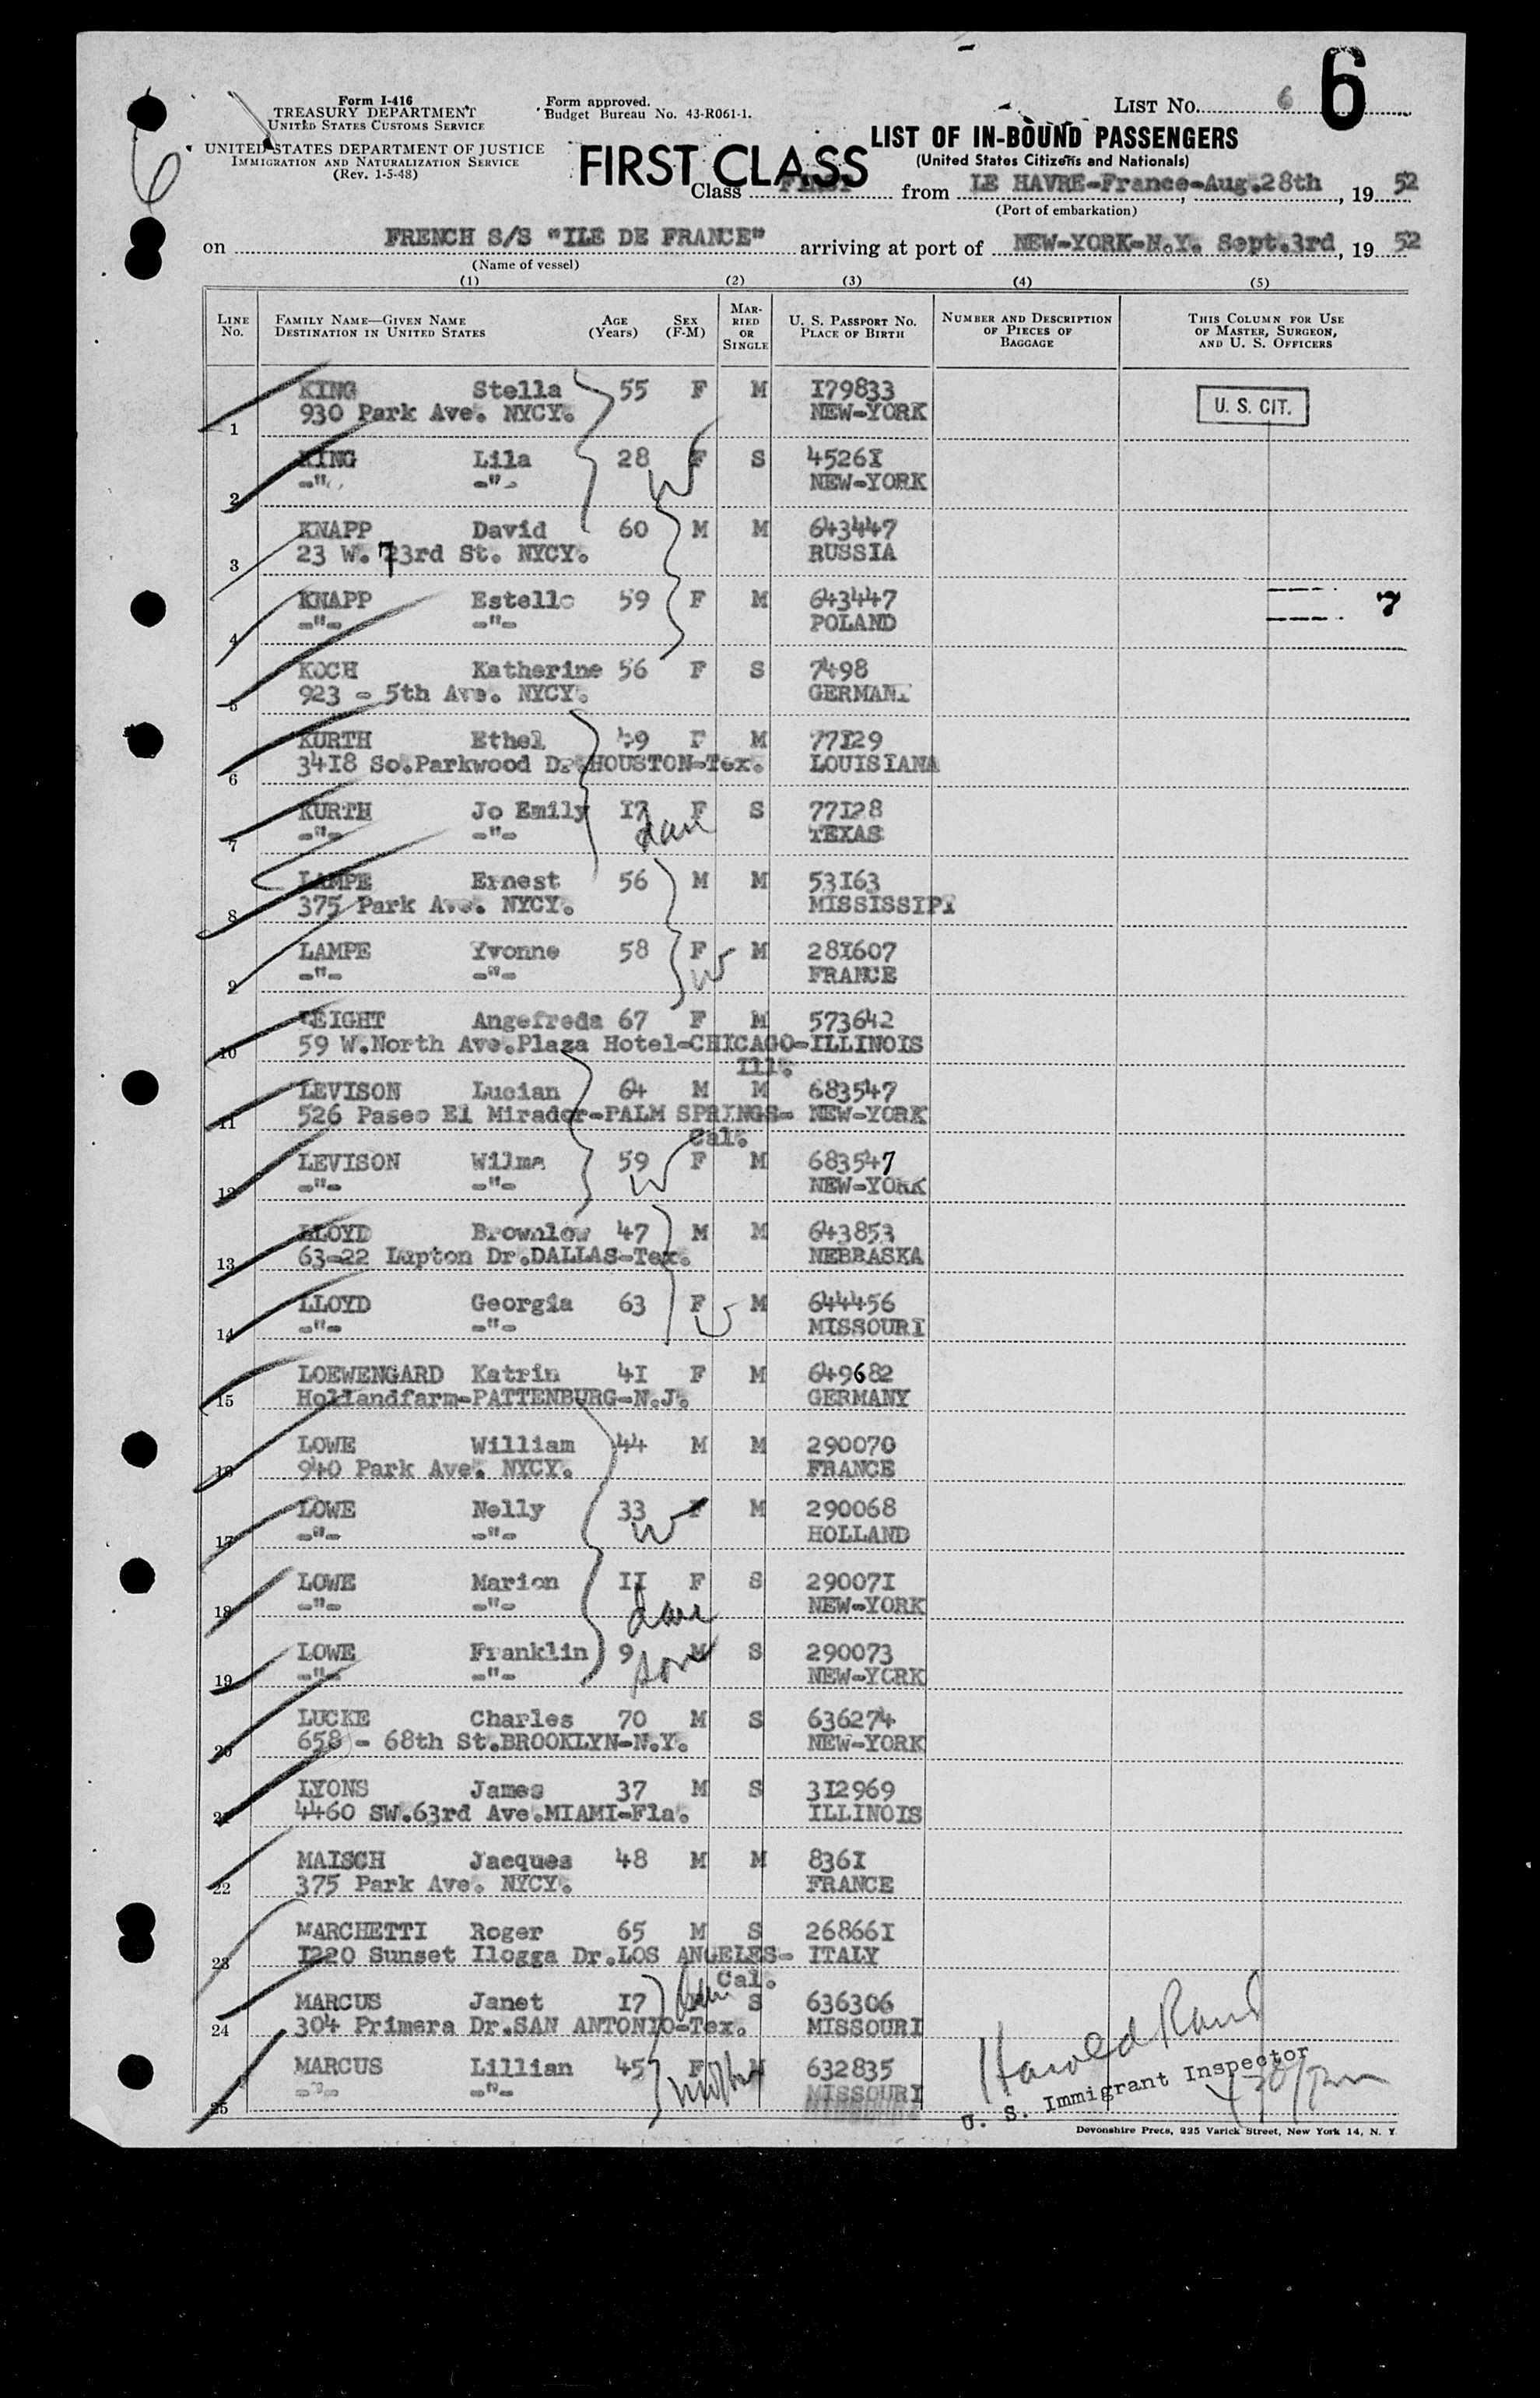 6
6
Form I-416
TREASURY DEPARTMENT
UNITED STATES CUSTOMS SERVICE
UNITED STATES DEPARTMENT OF JUSTICE
IMMIGRATION AND NATURALIZATION SERVICE
(Rev. 1-5-48)
Form approved.
Budget Bureau No. 43-R061-1.
LIST NO. 6
LIST OF IN-BOUND PASSENGERS
(United States Citizens and Nationals)
FIRST CLASS
Class FIRST from LE HAVRE-France-Aug.28th, 19 52
(Port of embarkation)
on FRENCH S/S "ILE DE FRANCE" arriving at port of NEW-YORK-N.Y. Sept.3rd, 19 52
(Name of vessel)
(1) (2) (3) (4) (5)
LINE NO. FAMILY NAME—GIVEN NAME DESTINATION IN UNITED STATES AGE (Years) SEX (F-M) MARRIED OR SINGLE U. S. PASSPORT NO. PLACE OF BIRTH NUMBER AND DESCRIPTION OF PIECES OF BAGGAGE THIS COLUMN FOR USE OF MASTER, SURGEON, AND U. S. OFFICERS
KING Stella 55 F M I79833 U. S. CIT.
1 930 Park Ave. NYCY. NEW-YORK
KING Lila 28 F S 4526I
2 -"- -"- W NEW-YORK
KNAPP David 60 M M 643447
3 23 W. 73rd St. NYCY. RUSSIA
KNAPP Estelle 59 F M 643447 7
4 -"- -"- POLAND
KOCH Katherine 56 F S 7498
5 923 - 5th Ave. NYCY. GERMANY
KURTH Ethel 49 F M 77I29
6 34I8 So.Parkwood Dr.HOUSTON-Tex. LOUISIANA
KURTH Jo Emily I7 F S 77I28
7 -"- -"- dau TEXAS
LAMPE Ernest 56 M M 53I63
8 375 Park Ave. NYCY. MISSISSIPI
LAMPE Yvonne 58 F M 28I607
9 -"- -"- W FRANCE
LEIGHT Angefreda 67 F M 573642
10 59 W.North Ave.Plaza Hotel-CHICAGO-ILLINOIS
Ill.
LEVISON Lucian 64 M M 683547
11 526 Paseo El Mirador-PALM SPRINGS- NEW-YORK
Cal.
LEVISON Wilma 59 F M 683547
12 -"- -"- W NEW-YORK
LLOYD Brownlow 47 M M 643853
13 63-22 Lupton Dr.DALLAS-Tex. NEBRASKA
LLOYD Georgia 63 F M 644456
14 -"- -"- W MISSOURI
LOEWENGARD Katrin 4I F M 649682
15 Hollandfarm-PATTENBURG-N.J. GERMANY
LOWE William 44 M M 290070
16 940 Park Ave. NYCY. FRANCE
LOWE Nelly 33 F M 290068
17 -"- -"- W HOLLAND
LOWE Marion II F S 29007I
18 -"- -"- dau NEW-YORK
LOWE Franklin 9 M S 290073
19 -"- -"- son NEW-YORK
LUCKE Charles 70 M S 636274
20 658 - 68th St.BROOKLYN-N.Y. NEW-YORK
LYONS James 37 M S 3I2969
21 4460 SW.63rd Ave.MIAMI-Fla. ILLINOIS
MAISCH Jacques 48 M M 836I
22 375 Park Ave. NYCY. FRANCE
MARCHETTI Roger 65 M S 26866I
23 I220 Sunset Ilogga Dr.LOS ANGELES- ITALY
Cal.
MARCUS Janet I7 S 636306
24 304 Primera Dr.SAN ANTONIO-Tex. MISSOURI
MARCUS Lillian 45 F M 632835
25 -"- -"- mother MISSOURI
Harold Rand
U. S. Immigrant Inspector
Devonshire Press, 225 Varick Street, New York 14, N. Y.